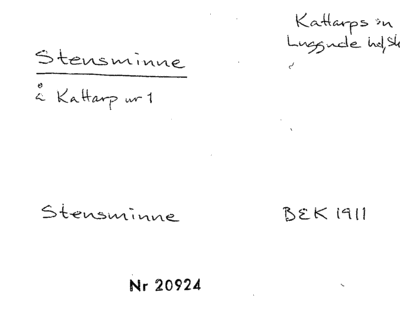 Kattarps sn
Luggude hd, Sk
Stensminne
å Kattarp nr 1
Stensminne
BEK 1911
Nr 20924